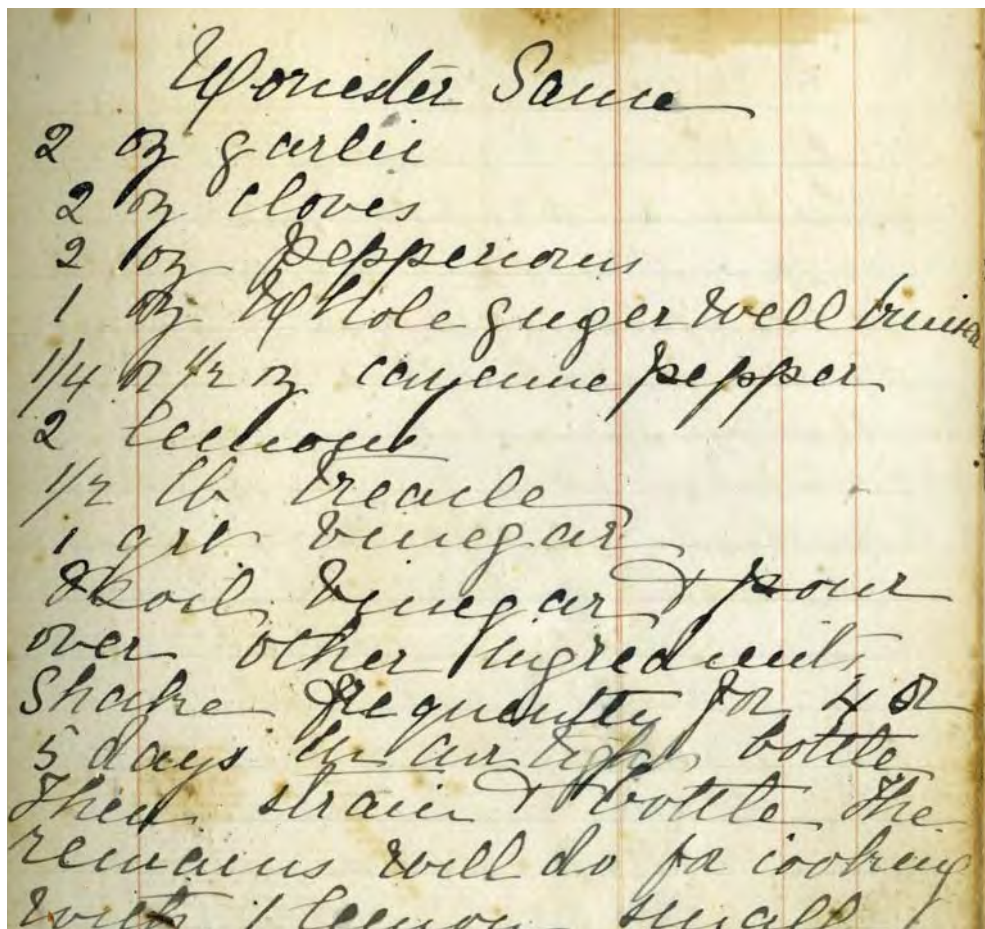 Worcester Sauce
2 oz garlic
2 oz cloves
2 oz peppercorns
1 oz Whole ginger well bruised
1/4 or 1/2 oz cayenne pepper
2 lemons
1/2 lb treacle
1 qrt vinegar
Boil vinegar & pour
over other ingredients
Shake frequently for 4 or
5 days in air tight bottle
Then strain & bottle The
remains will do for cooking
with 1 lemon small